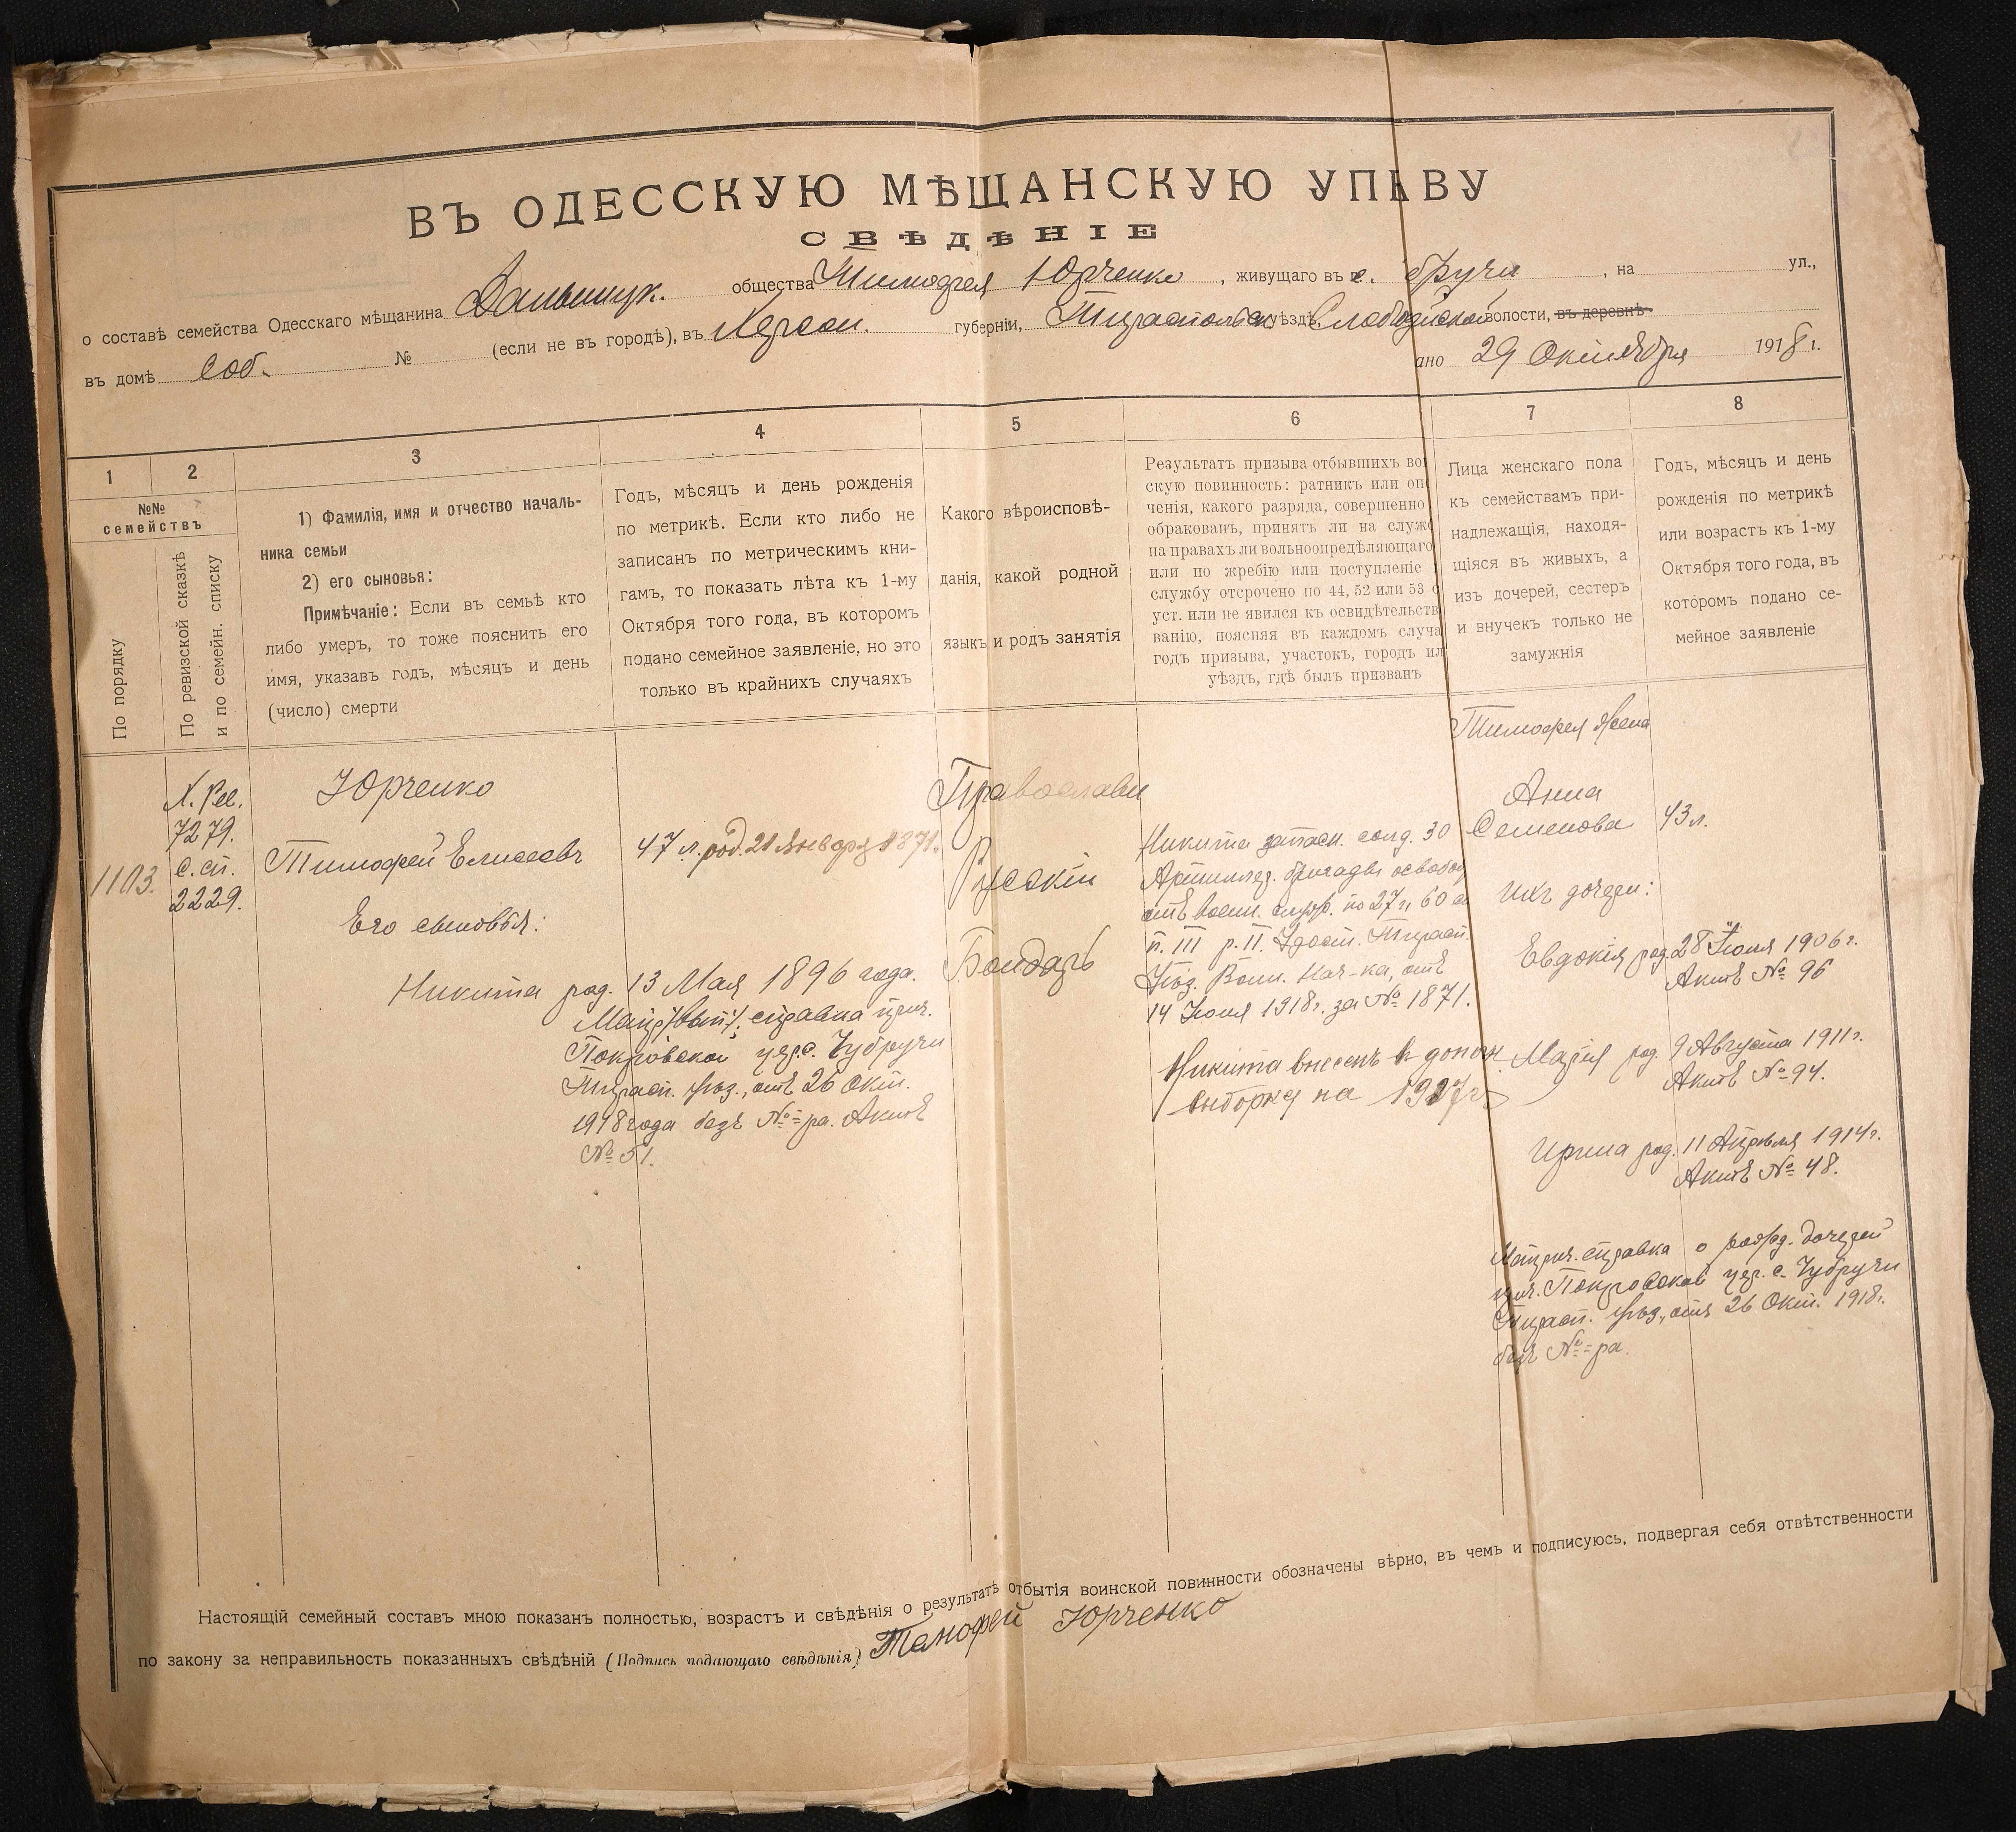 ВЪ ОДЕССКУЮ МѢЩАНСКУЮ УП ВУ
СВѢДѢНІЕ
о составѣ семейства Одесскаго мѣщанина Дальницк. общества Тимофея Юрченко, живущаго въ с. бручи, на ул.,
въ домѣ Соб. № (если не въ городѣ), въ Херсон. губерніи, Тираспольск. уѣздѣ Слободзейской волости, въ деревнѣ
ано 29 Октября 1918 г.
1 2 3 4 5 6 7 8
№№
семействъ
По порядку
По ревизской сказкѣ
и по семейн. списку
1) Фамилія, имя и отчество началь-
ника семьи
2) его сыновья:
Примѣчаніе: Если въ семьѣ кто
либо умеръ, то тоже пояснить его
имя, указавъ годъ, мѣсяцъ и день
(число) смерти
Годъ, мѣсяцъ и день рожденія
по метрикѣ. Если кто либо не
записанъ по метрическимъ кни-
гамъ, то показать лѣта къ 1-му
Октября того года, въ которомъ
подано семейное заявленіе, но это
только въ крайнихъ случаяхъ
Какого вѣроисповѣ-
данія, какой родной
языкъ и родъ занятія
Результатъ призыва отбывшихъ вои
скую повинность: ратникъ или опо
ченія, какого разряда, совершенно
обракованъ, принятъ ли на служ
на правахъ ли вольноопредѣляющаго
или по жребію или поступленіе
службу отсрочено по 44, 52 или 53 с
уст. или не явился къ освидѣтельств
ванію, поясняя въ каждомъ случа
годъ призыва, участокъ, городъ ил
уѣздъ, гдѣ былъ призванъ
Лица женскаго пола
къ семействамъ при-
надлежащія, находя-
щіяся въ живыхъ, а
изъ дочерей, сестеръ
и внучекъ только не
замужнія
Годъ, мѣсяцъ и день
рожденія по метрикѣ
или возрастъ къ 1-му
Октября того года, въ
которомъ подано се-
мейное заявленіе
1103.
X. Рев.
7279.
С. сп.
2229.
Юрченко
Тимофей Елисеевъ
Его сыновья:
Никита род. 13 Мая 1896 года.
47 л. род. 21 Января 1871.
справка прич.
Покровской цер. с. Чубручи
Тирасп. уѣз., отъ 26 Окт.
1918 года безъ №=ра. Актъ
№ 51.
Православн
Русскій
Бондарь
Никита запасн. солд. 30
Артиллер. бригады освобод
отъ воен. служ. по 27 г, 60 а
п. III р. II. Удост. Тирасп.
Уѣз. Воин. Нач-ка, отъ
14 Іюля 1918 г. за № 1871.
Никита внесенъ въ дополн.
выборку на 1917 г.
Тимофея жена
Анна
Семенова 43 л.
Ихъ дочери:
Евдокія род. 28 Іюля 1906 г.
Актъ № 96
Марія род. 9 Августа 1911 г.
Актъ № 94.
Ирина род. 11 Апрѣля 1914 г.
Актъ № 48.
Метрич. справка о рожд. дочерей
прич. Покровской цер. с. Чубручи
Тирасп. уѣз., отъ 26 Окт. 1918 г.
безъ №=ра.
Настоящій семейный составъ мною показанъ полностью, возрастъ и свѣдѣнія о результатѣ отбытія воинской повинности обозначены вѣрно, въ чемъ и подписуюсь, подвергая себя отвѣтственности
по закону за неправильность показанныхъ свѣдѣній (Подпись подающаго свѣдѣнія) Темофей Юрченко